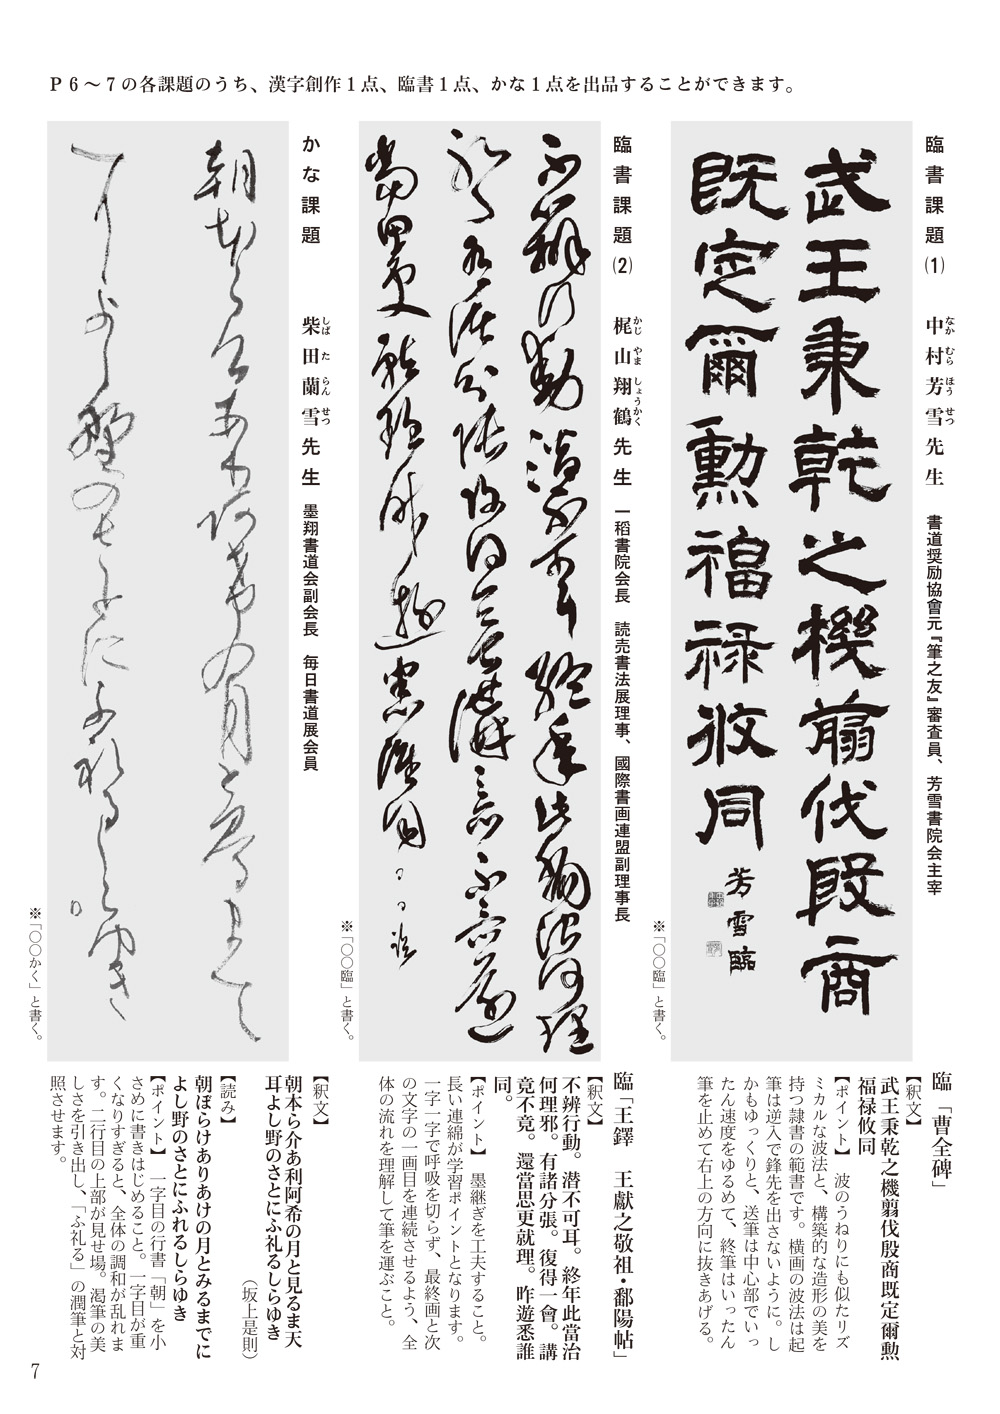 P6～7の各課題のうち、漢字創作1点、臨書1点、かな1点を出品することができます。
臨書課題(1) 中村芳雪先生 書道奨励協會元『筆之友』審査員、芳雪書院会主宰
なかむらほうせつ
武王秉乾之機翦伐殷商
既定爾勲福禄攸同
芳雪臨
※「〇〇臨」と書く。
臨「曹全碑」
【釈文】
武王秉乾之機翦伐殷商既定爾勲
福禄攸同
【ポイント】 波のうねりにも似たリズ
ミカルな波法と、構築的な造形の美を
持つ隷書の範書です。横画の波法は起
筆は逆入で鋒先を出さないように。し
かもゆっくりと、送筆は中心部でいっ
たん速度をゆるめて、終筆はいったん
筆を止めて右上の方向に抜きあげる。
臨書課題(2) 梶山翔鶴先生 一稻書院会長 読売書法展理事、國際書画連盟副理事長
かじやましょうかく
不辨行動潜不可耳終年此當治何理
邪有諸分張復得一會講竟不竟還
當思更就理昨遊悉誰同
※「〇〇臨」と書く。
臨「王鐸 王獻之敬祖・鄱陽帖」
【釈文】
不辨行動。潜不可耳。終年此當治
何理邪。有諸分張。復得一會。講
竟不竟。還當思更就理。昨遊悉誰
同。
【ポイント】 墨継ぎを工夫すること。
長い連綿が学習ポイントとなります。
一字一字で呼吸を切らず、最終画と次
の文字の一画目を連続させるよう、全
体の流れを理解して筆を運ぶこと。
かな課題 柴田蘭雪先生 墨翔書道会副会長 毎日書道展会員
しばたらんせつ
朝本ら介あ利阿希の月と見るま天
耳よし野のさとにふ礼るしらゆき
※「〇〇かく」と書く。
【釈文】
朝本ら介あ利阿希の月と見るま天
耳よし野のさとにふ礼るしらゆき
（坂上是則）
【読み】
朝ぼらけありあけの月とみるまでに
よし野のさとにふれるしらゆき
【ポイント】 一字目の行書「朝」を小
さめに書きはじめること。一字目が重
くなりすぎると、全体の調和が乱れま
す。二行目の上部が見せ場。渇筆の美
しさを引き出し、「ふ礼る」の潤筆と対
照させます。
7